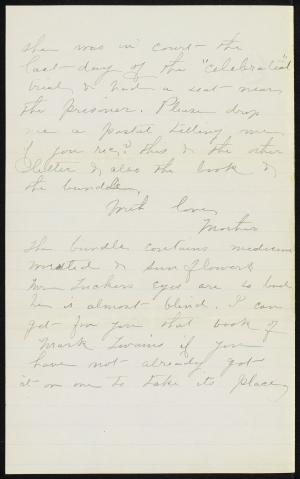 she was in court the
last day of the "celebrated"
trial & had a seat near
the prisoner. Please drop
me a postal telling me
if you rec? this & the other
letter & also the book &
the bundle,
With love,
Mother
The bundle contains medicine
& sun flowers
Mr Tuckers eyes are so bad
he is almost blind. I can
get for you that book of
Mark Twains if you
have not already got
it or one to take its place,